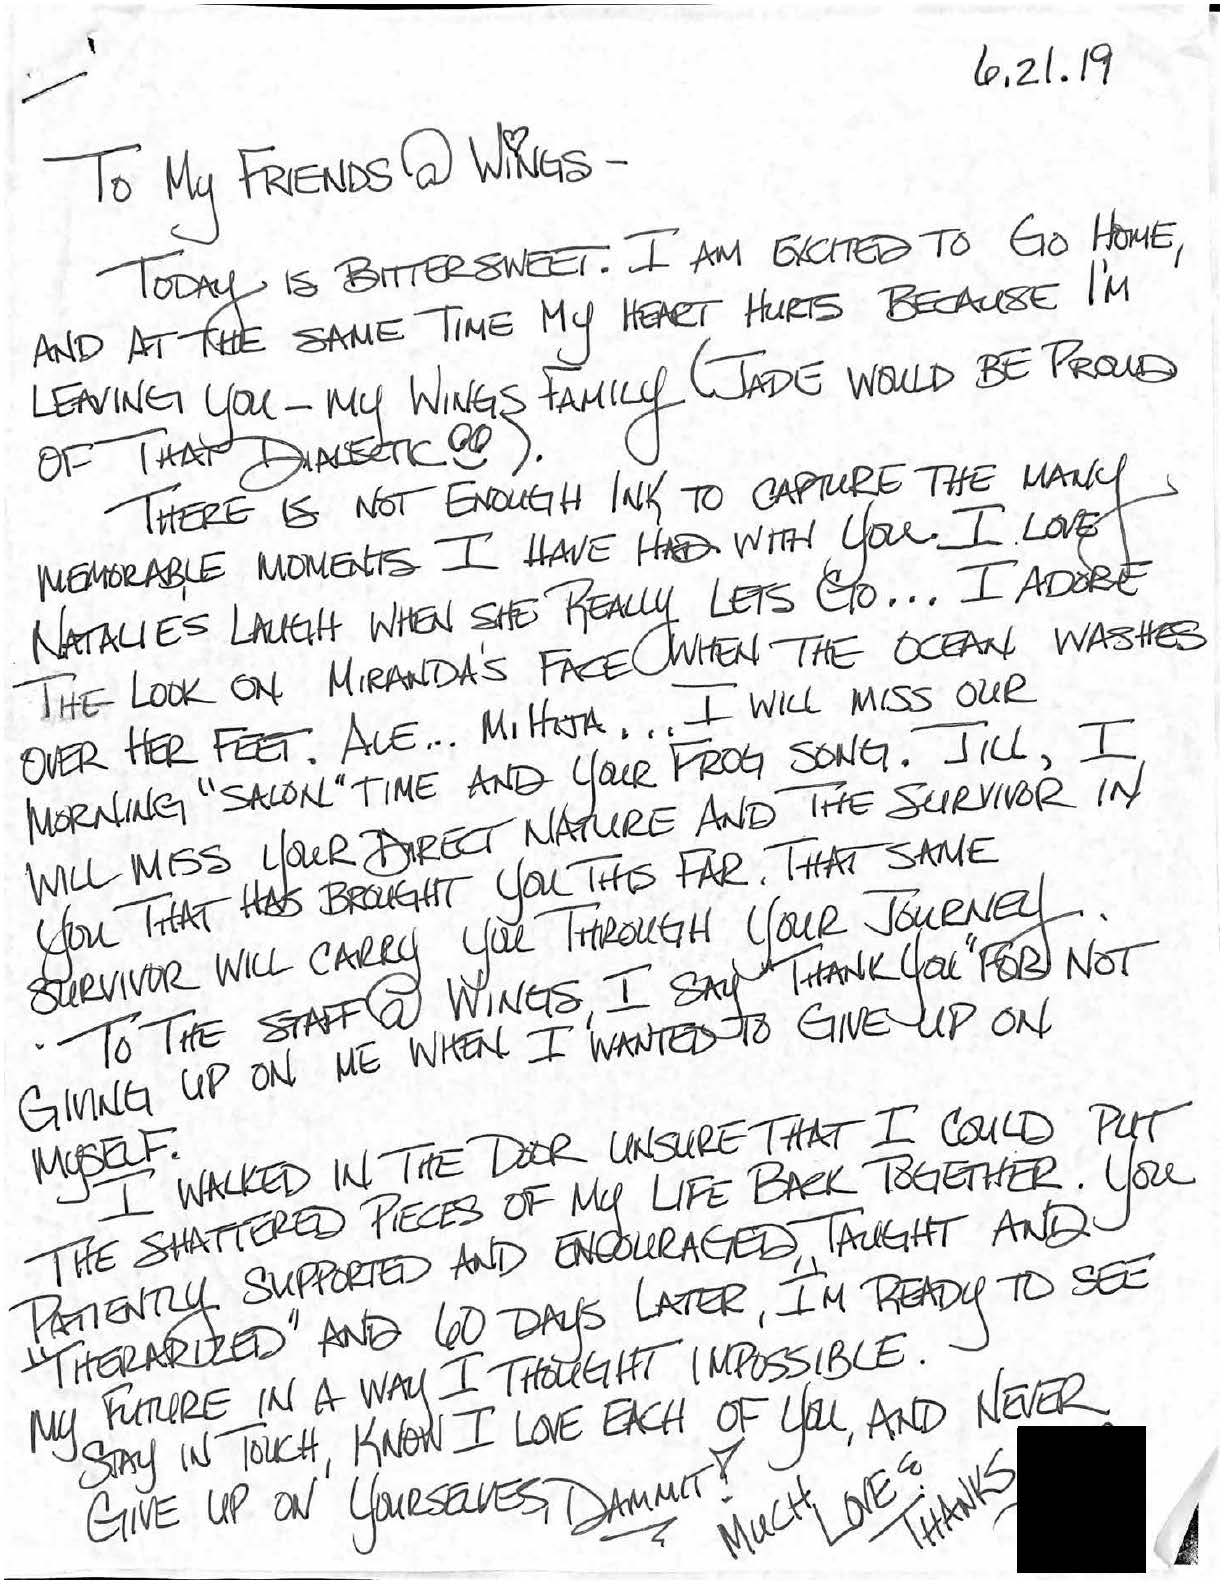 6.21.19
To My Friends @ Wings –
Today is Bittersweet. I am excited to Go Home,
and at the same Time My Heart Hurts Because I'm
Leaving you – my Wings Family (Jade would be Proud
of That Dialectic ).
There is not Enough Ink to capture the many
memorable moments I have had with You. I love
Natalie's Laugh when she Really Lets Go... I adore
The Look on Miranda's Face when the ocean washes
over her feet. Ale... Mi Hija... I will miss our
morning "salon" time and your Frog song. Jill, I
will miss your Direct nature and the survivor in
You that has brought you this far. That same
survivor will carry you through your Journey.
To the staff @ Wings, I say "Thank you" for not
Giving up on me when I wanted to Give up on
myself.
I walked in the Door unsure that I could put
the shattered pieces of my life back together. You
Patiently supported and encouraged, Taught and
"Therapized" and 60 days later, I'm ready to see
my future in a way I thought impossible.
Stay in Touch, Know I love each of you, and never
Give up on Yourselves, Dammit!
Much Love &
Thanks